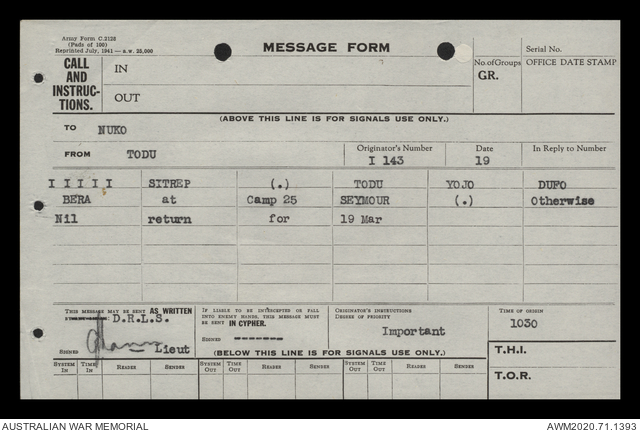 Army Form C.2128
(Pads of 100)
Reprinted July, 1941—A.W. 25,000
MESSAGE FORM
Serial No.
CALL AND INSTRUC-TIONS.
IN
OUT
No. of Groups
GR.
OFFICE DATE STAMP
(ABOVE THIS LINE IS FOR SIGNALS USE ONLY.)
TO NUKO
FROM TODU
Originator's Number
I 143
Date
19
In Reply to Number
I I I I I SITREP (.) TODU YOJO DUFO
BERA at Camp 25 SEYMOUR (.) Otherwise
Nil return for 19 Mar
THIS MESSAGE MAY BE SENT AS WRITTEN
D.R.L.S.
SIGNED Lieut
IF LIABLE TO BE INTERCEPTED OR FALL
INTO ENEMY HANDS, THIS MESSAGE MUST
BE SENT IN CYPHER.
SIGNED -------
ORIGINATOR'S INSTRUCTIONS
DEGREE OF PRIORITY
Important
TIME OF ORIGIN
1030
(BELOW THIS LINE IS FOR SIGNALS USE ONLY.)
T.H.I.
T.O.R.
SYSTEM IN TIME IN READER SENDER SYSTEM OUT TIME OUT READER SENDER SYSTEM OUT TIME OUT READER SENDER
AUSTRALIAN WAR MEMORIAL
AWM2020.71.1393